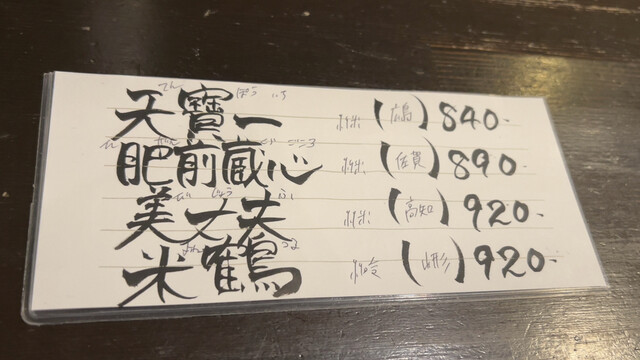 てん ぽう いち
天寶一 純米 【広島】 840-
ひ ぜん ごころ
肥前蔵心 純米 【佐賀】 890-
び じょう ふ
美丈夫 純米 【高知】 920-
よね つる
米鶴 純吟 (山形) 920-